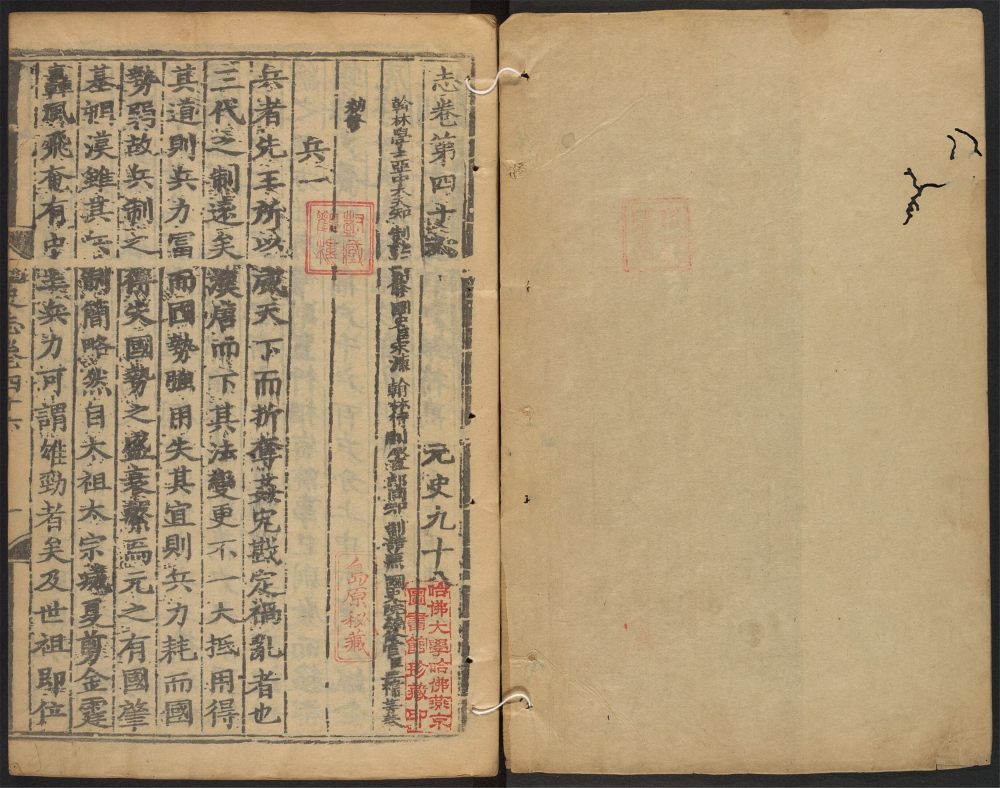 志卷第四十六 元史九十八
翰林學士亞中大夫知制誥兼脩國史臣宋濂翰林待制承直郎同知制誥兼國史院編脩官臣王禕等奉
勑脩
兵一
兵者先王所以威天下而折奪姦宄戡定禍亂者也
三代之制遠矣漢唐而下其法變更不一大抵用得
其道則兵力富而國勢強用失其宜則兵力耗而國
勢弱故兵制之得失國勢之盛衰繫焉元之有國肇
基朔漠雖其兵制簡略然自太祖太宗滅夏剪金霆
轟風飛奄有中土兵力可謂雄勁者矣及世祖即位
島原秘藏
哈佛大學哈佛燕京
圖書館珍藏印